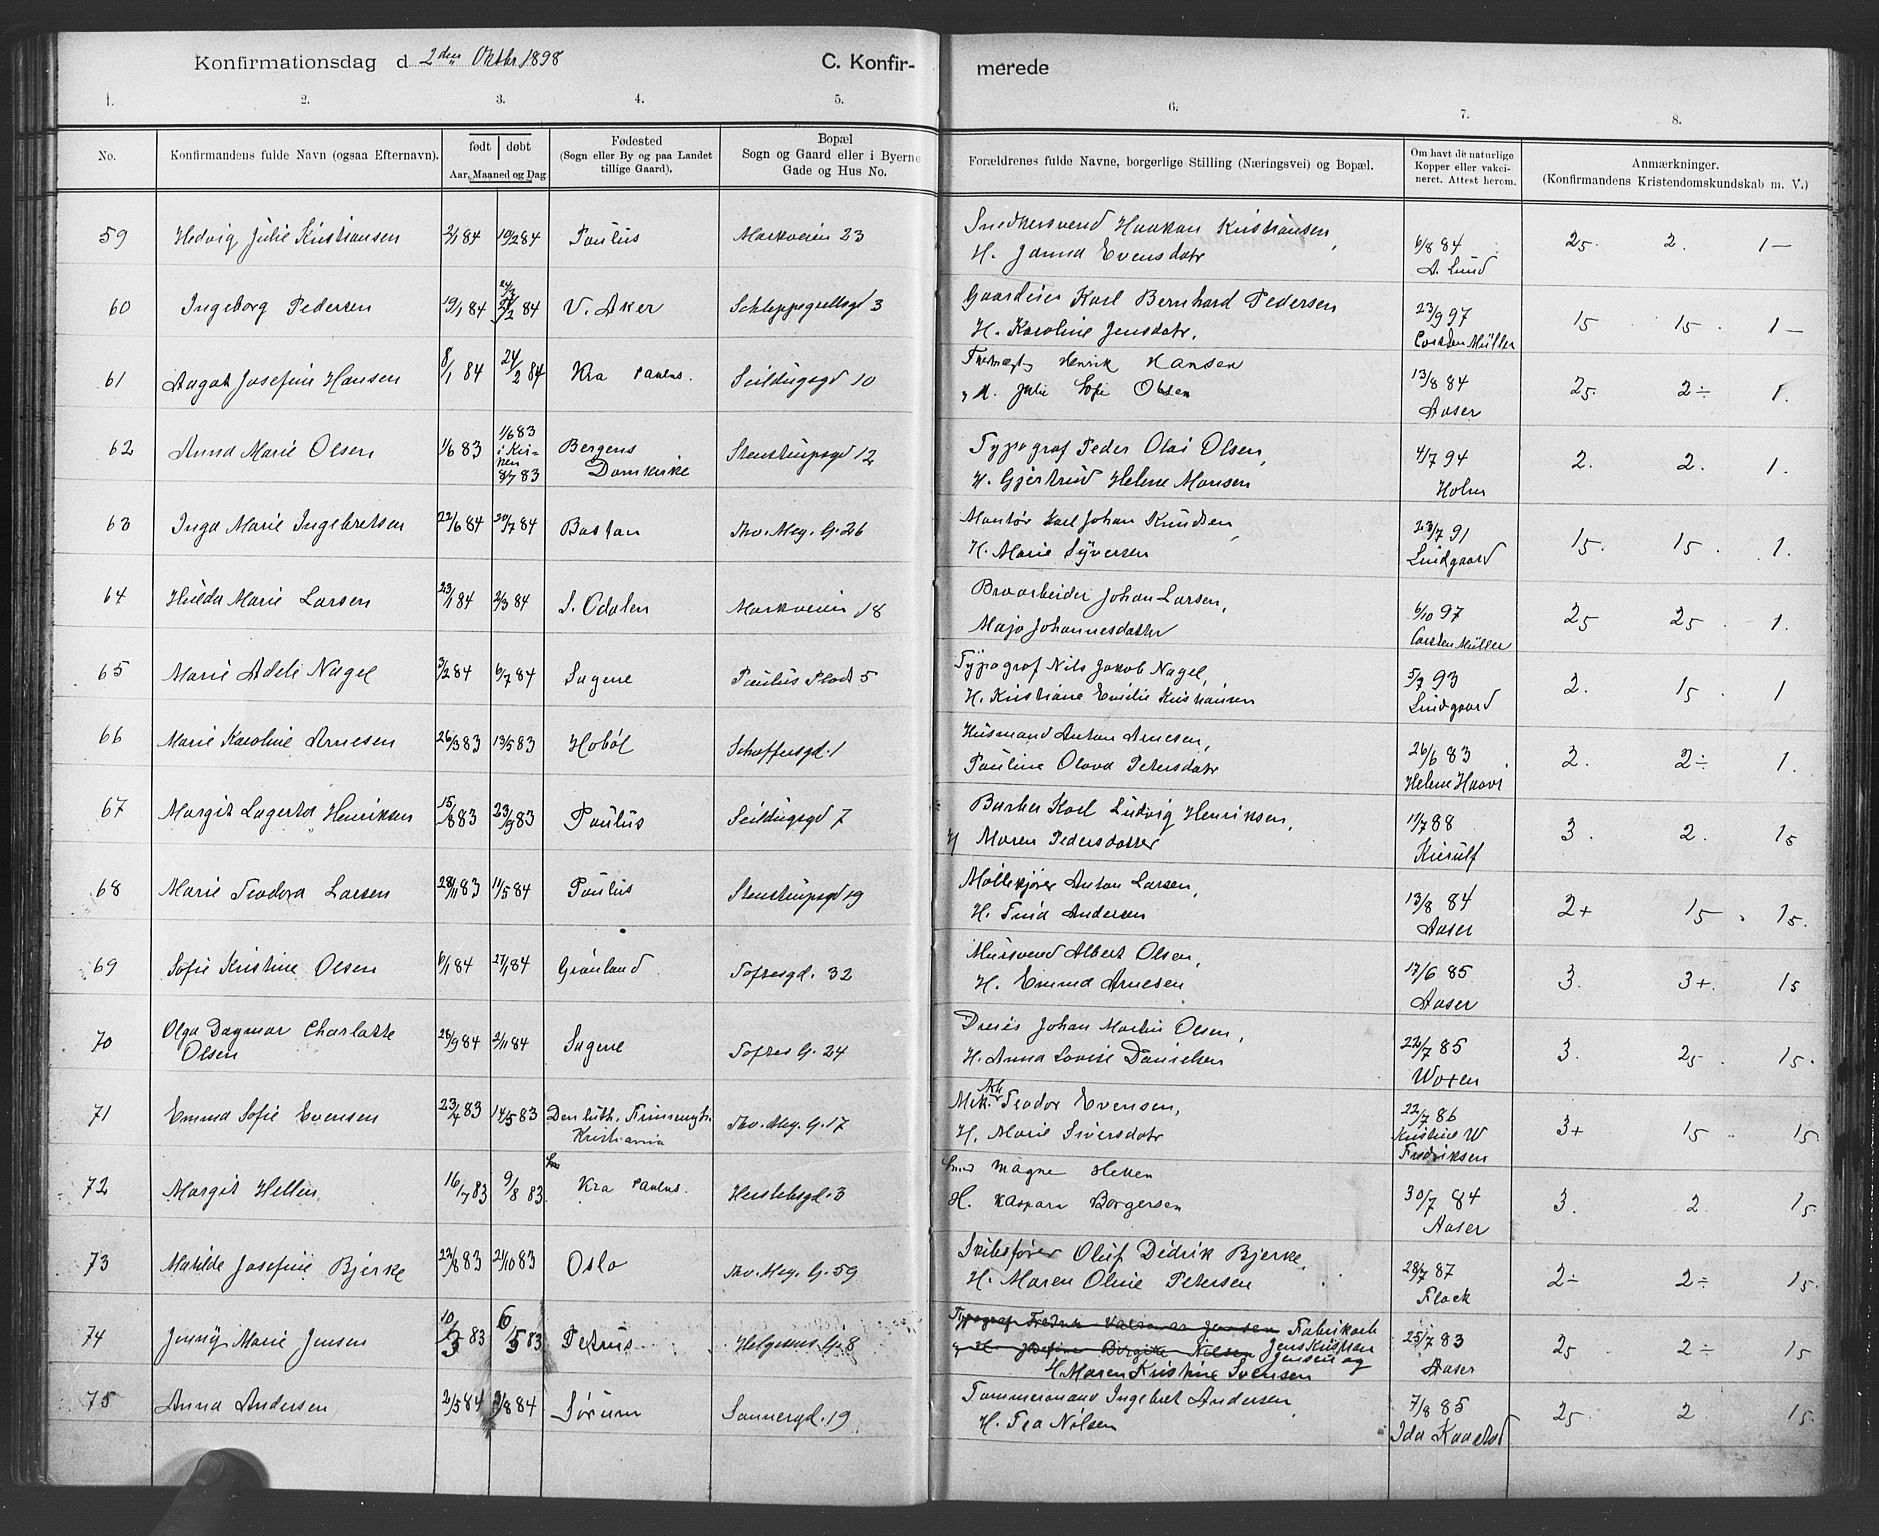 Konfirmationsdag d 2den Oktbr 1898
C. Konfir-
merede
1. 2. 3. 4. 5. 6. 7. 8.
No.
Konfirmandens fulde Navn (ogsaa Efternavn).
født døbt
Aar, Maaned og Dag
Fødested
(Sogn eller By og paa Landet
tillige Gaard).
Bopæl
Sogn og Gaard eller i Byerne
Gade og Hus No.
Forældrenes fulde Navne, borgerlige Stilling (Næringsvei) og Bopæl.
Om havt de naturlige
Kopper eller vakci-
neret. Attest herom.
Anmærkninger.
(Konfirmandens Kristendomskundskab m. V.)
59 Hedvig Julie Kristiansen 2/1 84 19/2 84 Paulus Markveien 23 Snedkersvend Haakon Kristiansen, 6/8 84 25. 2. 1-
H. Janna Evensdatr A. Lund
60 Ingeborg Pedersen 19/1 84 84 V. Aker Schleppegrellsgd 3 Gaardeier Karl Bernhard Pedersen 23/9 97 15. 15. 1-
H. Karoline Jensdatr. Carsten Müller
61 Aagot Josefine Hansen 8/1 84 24/2 84 Kra Paulus. Seildugsgd 10 Henrik Hansen 13/8 84 25. 2÷ 1.
Julie Sofie Olsen Aaser
62 Anna Marie Olsen 1/6 83 1/6 83 i Kir- ken 8/7 83 Bergens Domkirke Stenstrupsgd 12 Typograf Peder Olai Olsen, 4/7 94 2. 2. 1.
H. Gjertrud Helene Monsen Holm
63 Inga Marie Ingebretsen 22/6 84 20/7 84 Bastan Thv. Mey. G. 26 Montør Karl Johan Knudsen, 23/7 91 15. 15. 1.
H. Marie Syversen Lindgaard
64 Hilda Marie Larsen 23/1 84 2/3 84 S. Odalen Markveien 18 Broarbeider Johan Larsen, 6/10 97 25 25. 1.
Maja Johannesdatter Carsten Müller
65 Marie Adele Nagel 3/2 84 6/7 84 Sagene Paulus Plads 5 Typograf Nils Jakob Nagel, 5/7 93 2. 15. 1
H. Kristiane Emilie Kristiansen Lindgaard
66 Marie Karoline Arnesen 26/3 83 13/5 83 Hobøl Schøffersgd. 1 Husmand Anton Arnesen, 26/6 83 2. 2÷ 1.
Pauline Olava Petersdatr Helene
67 Margit Lagerta Henriksen 15/8 83 23/9 83 Paulus Seildugsgd 7 Barber Karl Ludvig Henriksen, 11/7 88 3. 2. 15
H Maren Pedersdatter Kierulf
68 Marie Teodora Larsen 28/11 83 11/5 84 Paulus Stenstrupsgd 19 Møllekjører Anton Larsen, 13/8 84 2+ 15. 15.
H. Tina Andersen Aaser
69 Sofie Kristine Olsen 6/1 84 27/1 84 Grønland Toftesgd. 32 Mursvend Albert Olsen, 17/6 85 3. 3+. 15
H. Emma Arnesen Aaser
70 Olga Dagmar Charlotte 28/9 84 2/11 84 Sagene Toftes G. 24 Dreier Johan Martin Olsen, 22/7 85 3. 25. 15.
Olsen H. Anna Lovise Danielsen Woxen
71 Emma Sofie Evensen 23/4 83 14/5 83 Den luth. Frimenigh. Kristiania Thv. Mey. G. 17 Mek. Arb. Teodor Evensen, 22/7 86 3+ 15 15.
H. Marie Siversdatr Kristine W
Fredriksen
72 Margit Hellen 16/7 83 9/8 83 Kra Paulus. Herslebsgd. 3 Smed Magne Hellen 30/7 84 3. 2. 15.
H. Kaspara Borgersen Aaser
73 Matilde Josefine Bjerke 22/8 83 21/10 83 Oslo Thv. Mey. G. 59 Skibsfører Oluf Didrik Bjerke, 28/7 87 2÷ 2÷ 15.
H. Maren Oline Petersen Flock
74 Jenny Marie Jensen 10/3 83 6/5 83 Petrus Helgesens G. 8 Typograf Fredrik Valdemar Jensen Fabrikarb 25/7 83 25 2÷ 15
og H. Josefine Birgitte Nilsen Jens Kristian
Jensen og
H. Maren Kristine Svensen Aaser
75 Anna Andersen 2/5 84 3/8 84 Sørum Sannergd. 19 Tømmermand Ingebret Andersen 7/8 85 25. 2. 15.
H. Tea Nilsen Ida